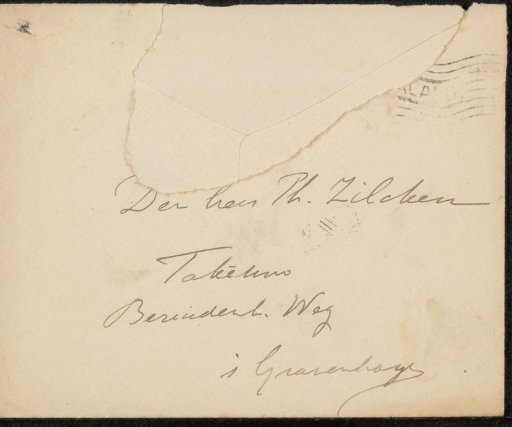 Den heer Ph. Zilcken
Bezuidenh. Weg
's Gravenhage